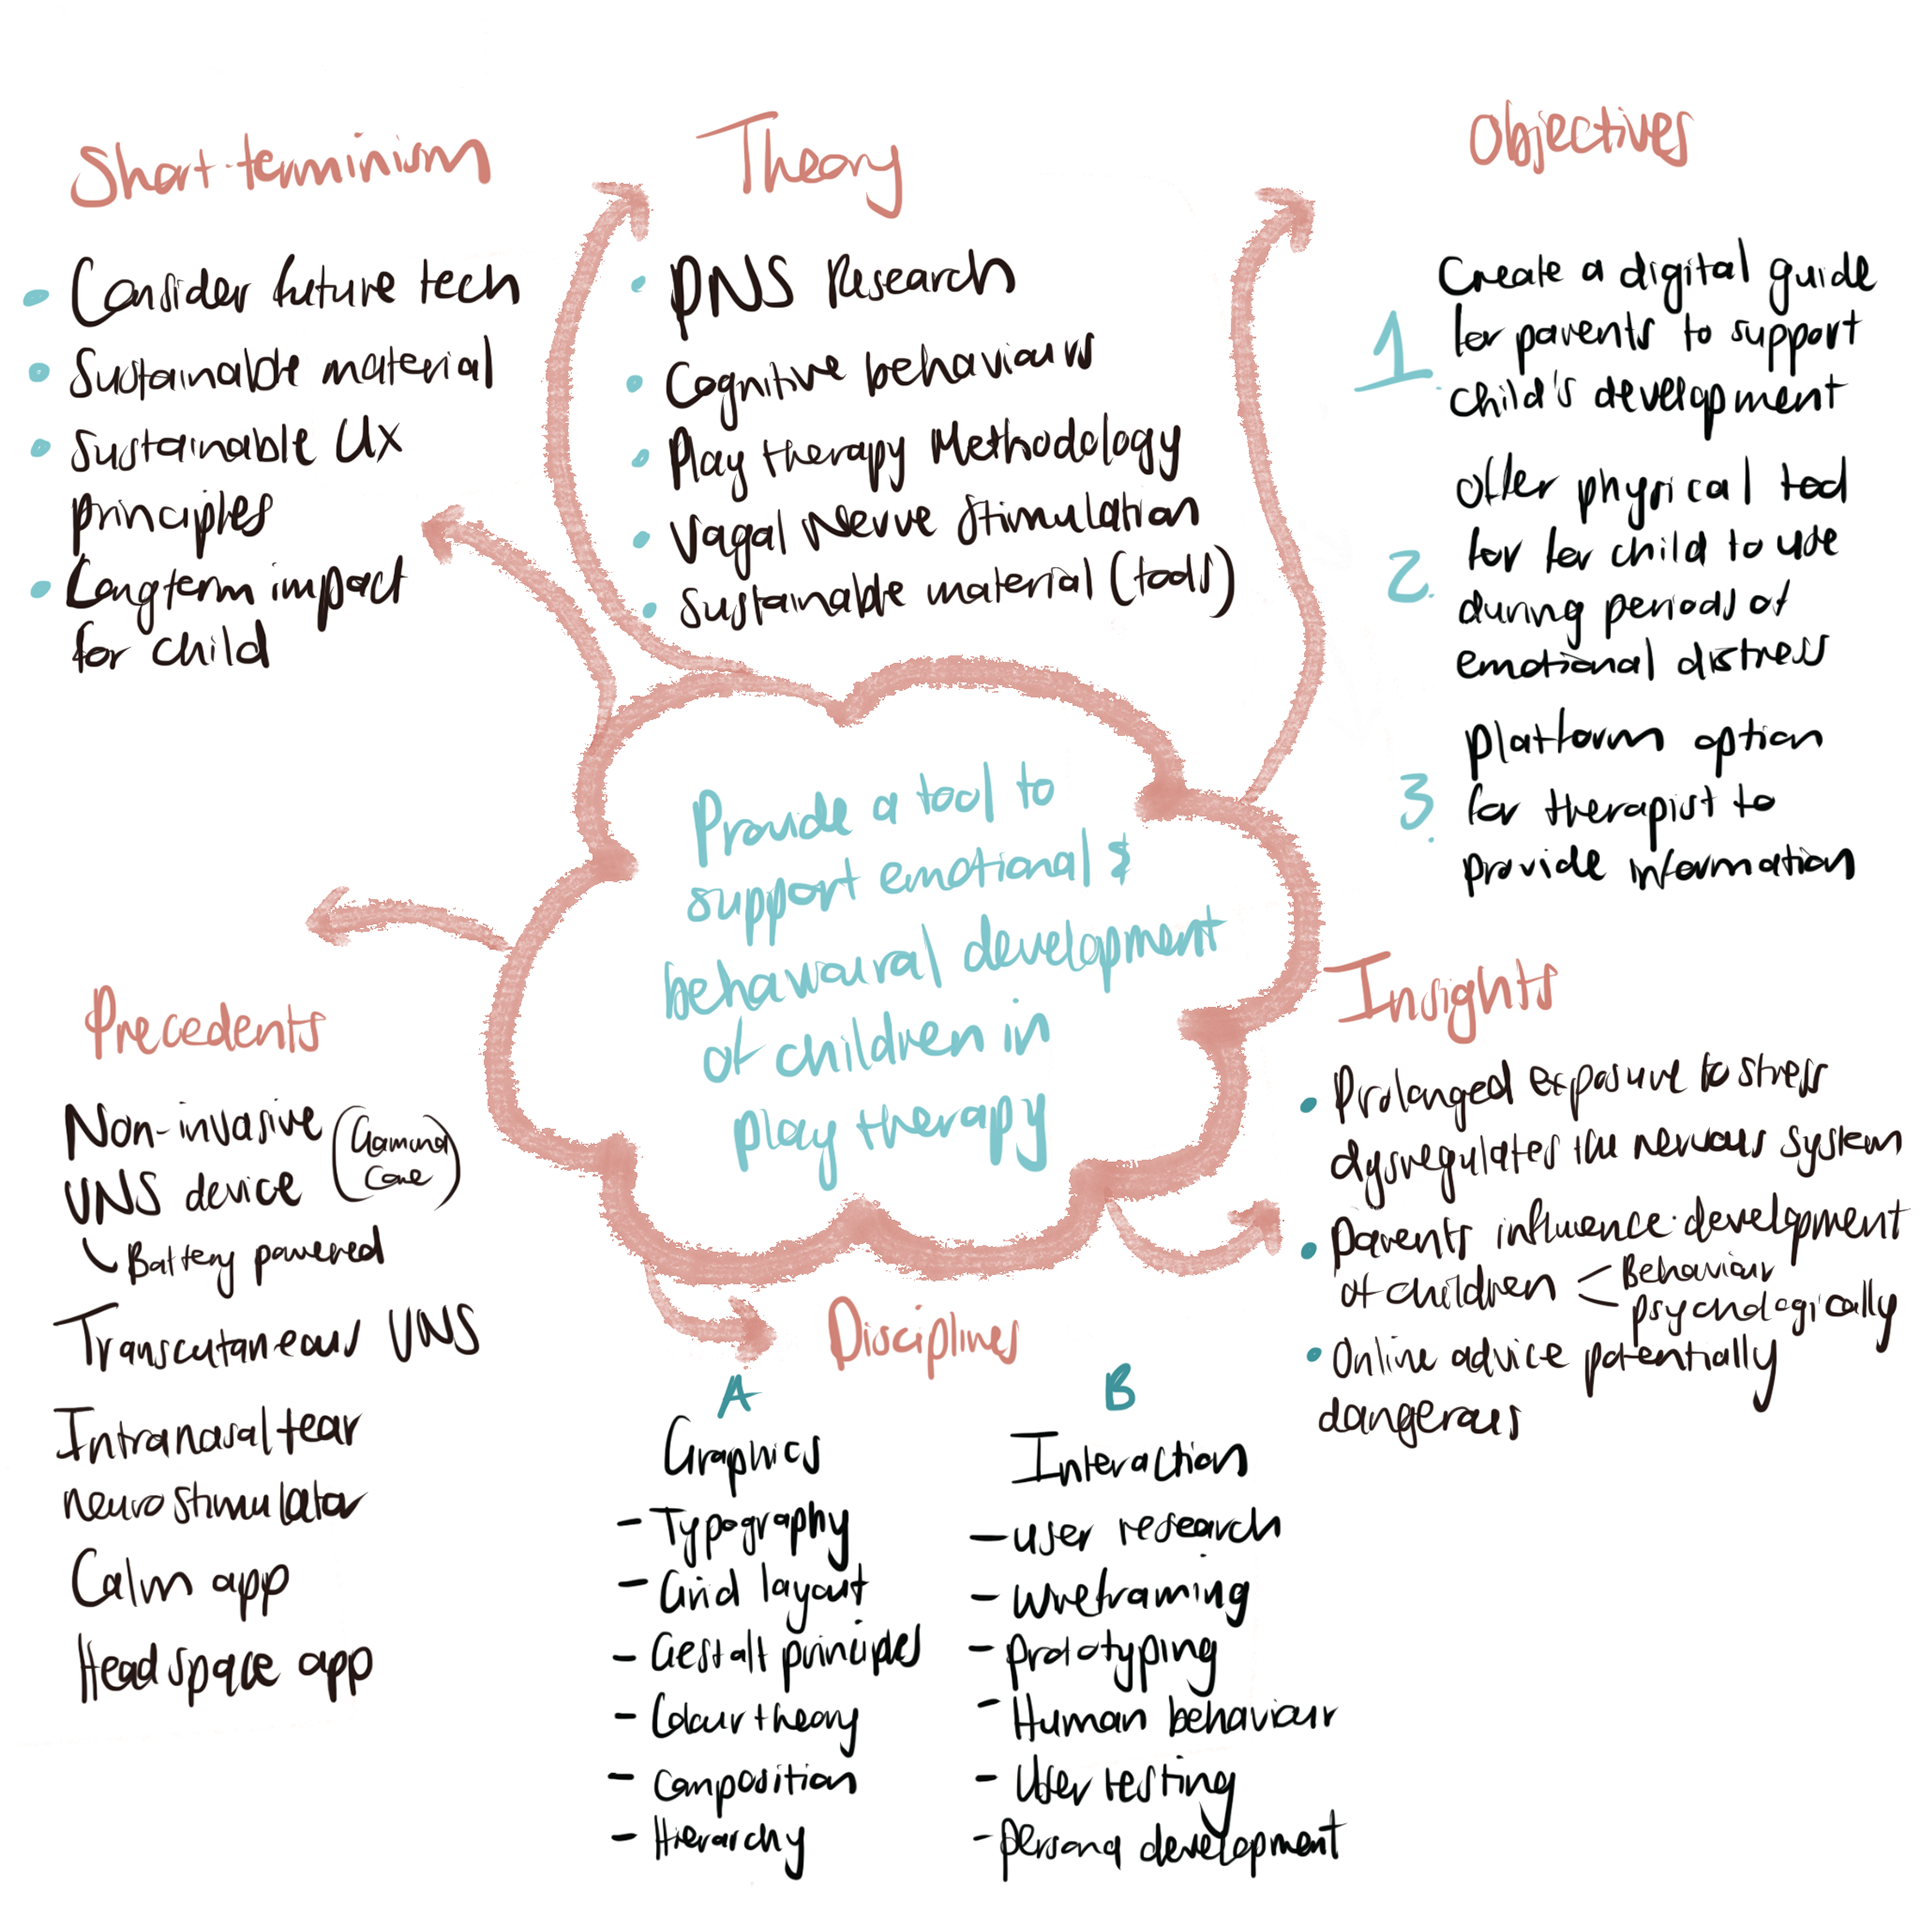 Short-terminism
Consider future tech
Sustainable material
Sustainable UX
principles
Longterm impact
for child
Theory
PNS Research
Cognitive behaviours
Play therapy Methodology
Vagal Nerve Stimulation
Sustainable material (tools)
Objectives
1.
Create a digital guide
for parents to support
child's development
2.
Offer physical tool
for for child to use
during periods of
emotional distress
3.
Platform option
for therapist to
provide information
Provide a tool to
support emotional &
behavioural development
of children in
play therapy
Precedents
Non-invasive (Gamma
VNS device Core)
Battery powered
Transcutaneous VNS
Intranasal tear
neurostimulator
Calm app
Headspace app
Insights
Prolonged exposure to stress
dysregulates the nervous system
Parents influence development
of children < Behaviour
psychologically
Online advice potentially
dangerous
Disciplines
A
Graphics
- Typography
- Grid layout
- Gestalt principles
- Colour theory
- Composition
- Hierarchy
B
Interaction
- User research
- Wireframing
- Prototyping
- Human behaviour
- User testing
- Persona development